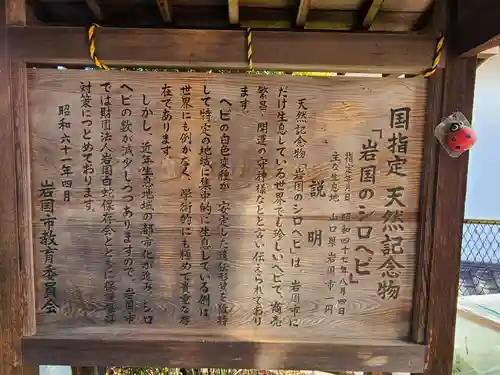 国指定 天然記念物
「岩国のシロヘビ」
指定年月日 昭和四十七年八月四日
主な生息地 山口県岩国市一円
説明
天然記念物「岩国のシロヘビ」は、岩国市に
だけ生息している世界でも珍しいヘビで、商売
繁昌、開運の守神様などと言い伝えられており
ます。
ヘビの白色変種が、安定した遺伝形質を維持
して特定の地域に集中的に生息している例は
世界にも例がなく、学術的にも極めて貴重な存
在であります。
しかし、近年生息地域の都市化が進み、シロ
ヘビの数が減少しつつありますので、岩国市
では財団法人岩国白蛇保存会とともに保護増殖
対策につとめております。
昭和六十一年四月
岩国市教育委員会